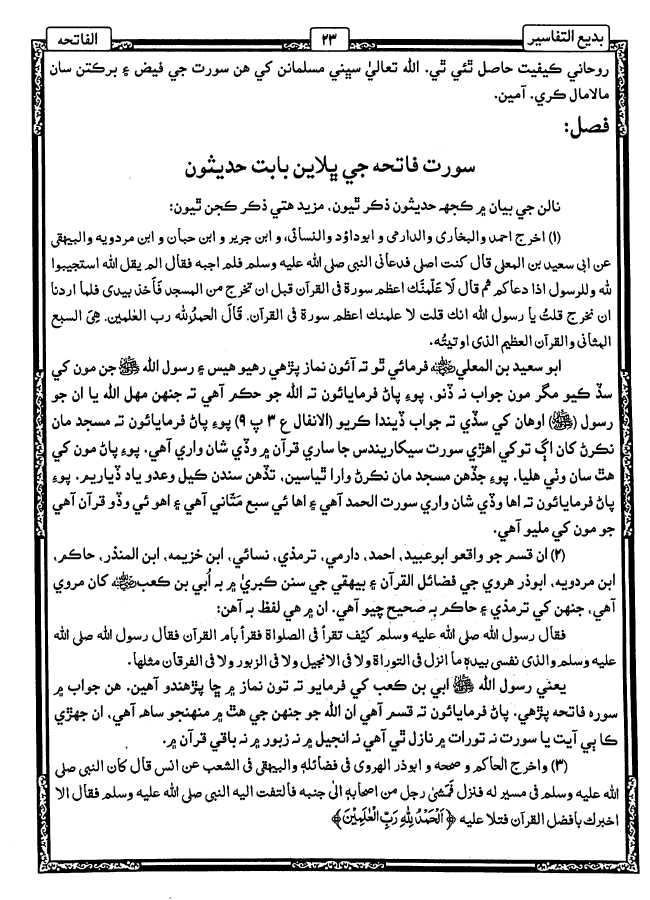 بديع التفاسير
٢٣
الفاتحه
روحاني ڪيفيت حاصل ٿئي ٿي. الله تعاليٰ سڀني مسلمانن کي هن سورت جي فيض ۽ برڪتن سان
مالامال ڪري. آمين.
فصل:
سورت فاتحه جي ڀلاين بابت حديثون
نالن جي بيان ۾ ڪجهه حديثون ذڪر ٿيون، مزيد هتي ذڪر ڪجن ٿيون:
(١) اخرج احمد والبخاری والدارمی و ابوداؤد والنسائی، و ابن جرير و ابن حبان و ابن مردويه والبيهقی
عن ابی سعيد بن المعلی قال کنت اصلی فدعانی النبی صلی الله عليه وسلم فلم اجبه فقال الم يقل الله استجيبوا
لله وللرسول اذا دعاکم ثم قال لَا عَلِّمنَّک اعظم سورة فی القرآن قبل ان تخرج من المسجد فَاَخذ بيدی فلما اردنا
ان نخرج قلتُ يا رسول الله انک قلت لا علمنک اعظم سورة فی القرآن. قَالَ الْحمدُلله رب العٰلمين. هِیَ السبع
المثانی والقرآن العظيم الذی اوتيتُه.
ابو سعيد بن المعلي رضي الله عنه فرمائي ٿو ته آئون نماز پڙهي رهيو هيس ۽ رسول الله ﷺ جن مون کي
سڏ ڪيو مگر مون جواب نہ ڏنو، پوءِ پاڻ فرمايائون ته الله جو حڪم آهي ته جنهن مهل الله يا ان جو
رسول (ﷺ) اوهان کي سڏي ته جواب ڏيندا ڪريو (الانفال ع ٣ پ ٩) پوءِ پاڻ فرمايائون ته مسجد مان
نڪرڻ کان اڳ توکي اهڙي سورت سيکاريندس جا ساري قرآن ۾ وڏي شان واري آهي. پوءِ پاڻ مون کي
هٿ سان وٺي هليا. پوءِ جڏهن مسجد مان نڪرڻ وارا ٿياسين، تڏهن سندن ڪيل وعدو ياد ڏياريم. پوءِ
پاڻ فرمايائون ته اها وڏي شان واري سورت الحمد آهي ۽ اها ئي سبع مَثاني آهي ۽ اهو ئي وڏو قرآن آهي
جو مون کي مليو آهي.
(٢) ان قسم جو واقعو ابوعبيد، احمد، دارمي، ترمذي، نسائي، ابن خزيمه، ابن المنذر، حاڪم،
ابن مردويه، ابوذر هروي جي فضائل القرآن ۽ بيهقي جي سنن ڪبريٰ ۾ به اُبي بن ڪعب رضي الله عنه کان مروي
آهي، جنهن کي ترمذي ۽ حاڪم به صحيح چيو آهي. ان ۾ هي لفظ به آهن:
فقال رسول الله صلی الله عليه وسلم کيْف تقرأ فی الصلواة فقرأ بام القرآن فقال رسول الله صلی الله
عليه وسلم والذی نفسی بيده ما انزل فی التوراة ولا فی الانجيل ولا فی الزبور ولا فی الفرقان مثلها.
يعني رسول الله ﷺ ابي بن ڪعب کي فرمايو ته تون نماز ۾ ڇا پڙهندو آهين. هن جواب ۾
سوره فاتحه پڙهي. پاڻ فرمايائون ته قسم آهي ان الله جو جنهن جي هٿ ۾ منهنجو ساهه آهي، ان جهڙي
ڪا ٻي آيت يا سورت نه تورات ۾ نازل ٿي آهي نه انجيل ۾ نه زبور ۾ نه باقي قرآن ۾.
(٣) واخرج الحاکم و صححه و ابوذر الهروی فی فضائله والبيهقی فی الشعب عن انس قال کان النبی صلی
الله عليه وسلم فی مسير له فنزل فَمَشیٰ رجل من اصحابهٖ الیٰ جنبه فالتفت اليه النبی صلی الله عليه وسلم فقال الا
اخبرک بافضل القرآن فتلا عليه ﴿اَلْحَمْدُ لِلّٰهِ رَبِّ الْعٰلَمِيْنَ﴾